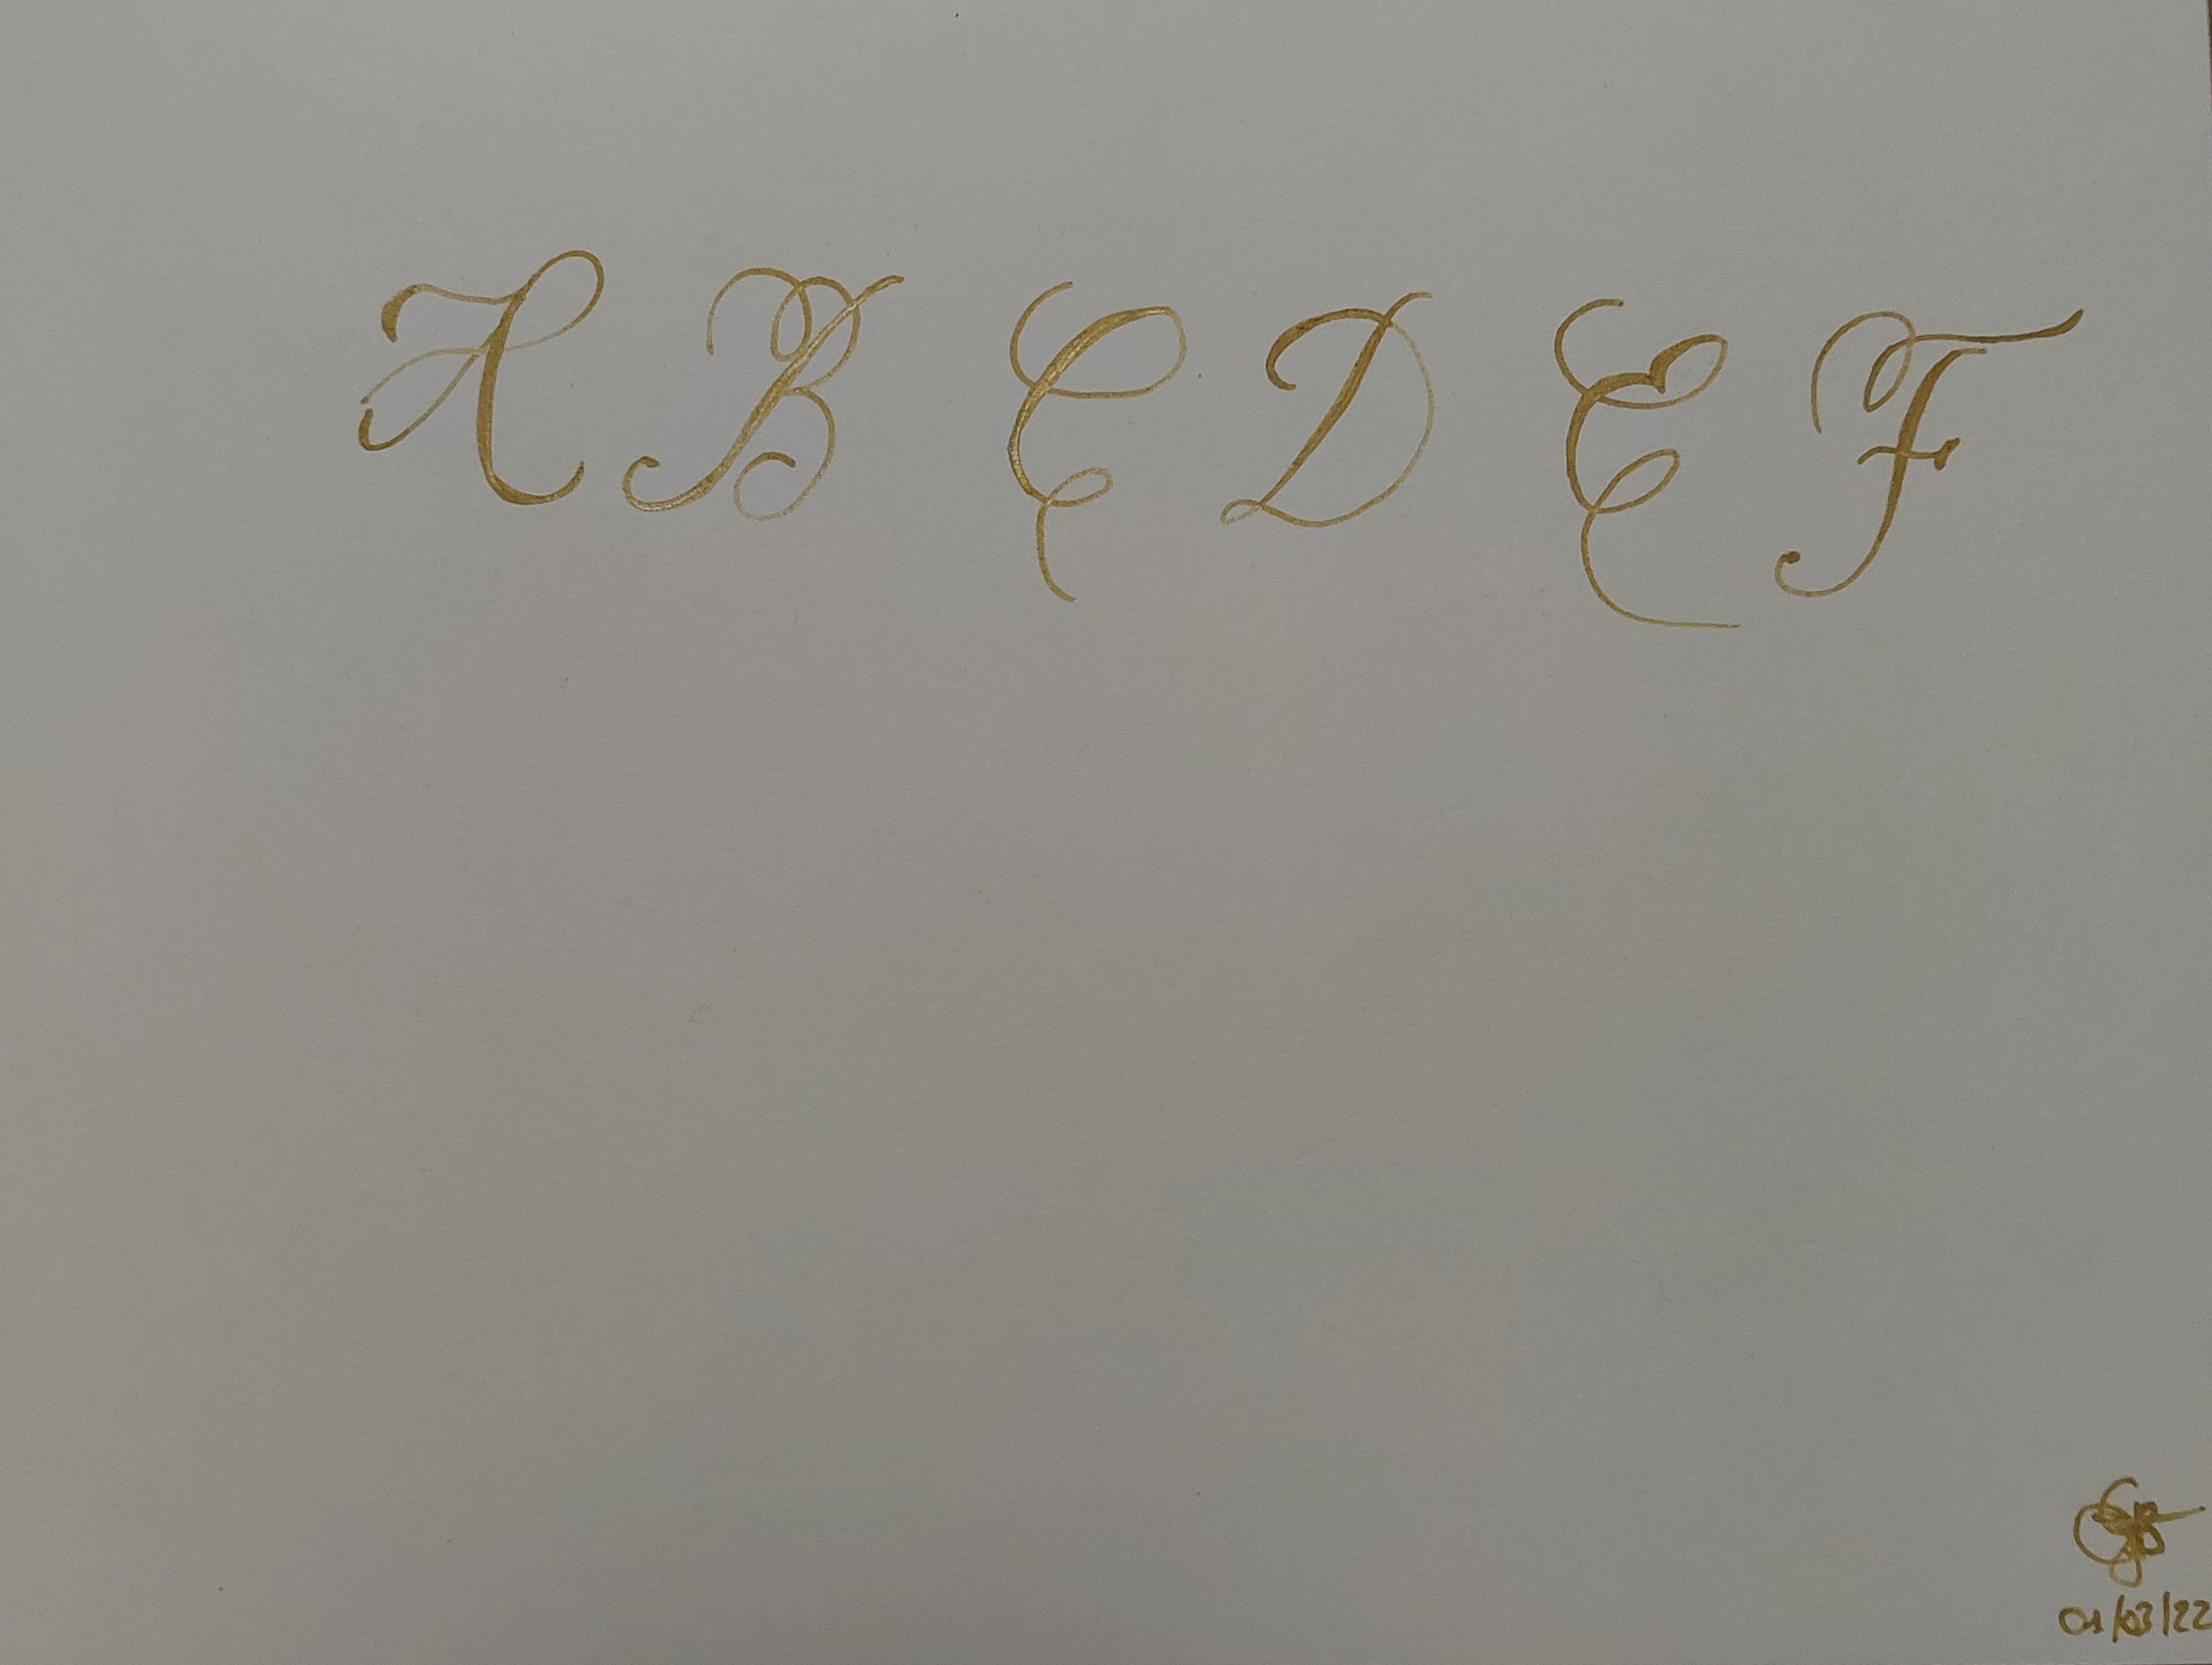 A B C D E F
01/03/22